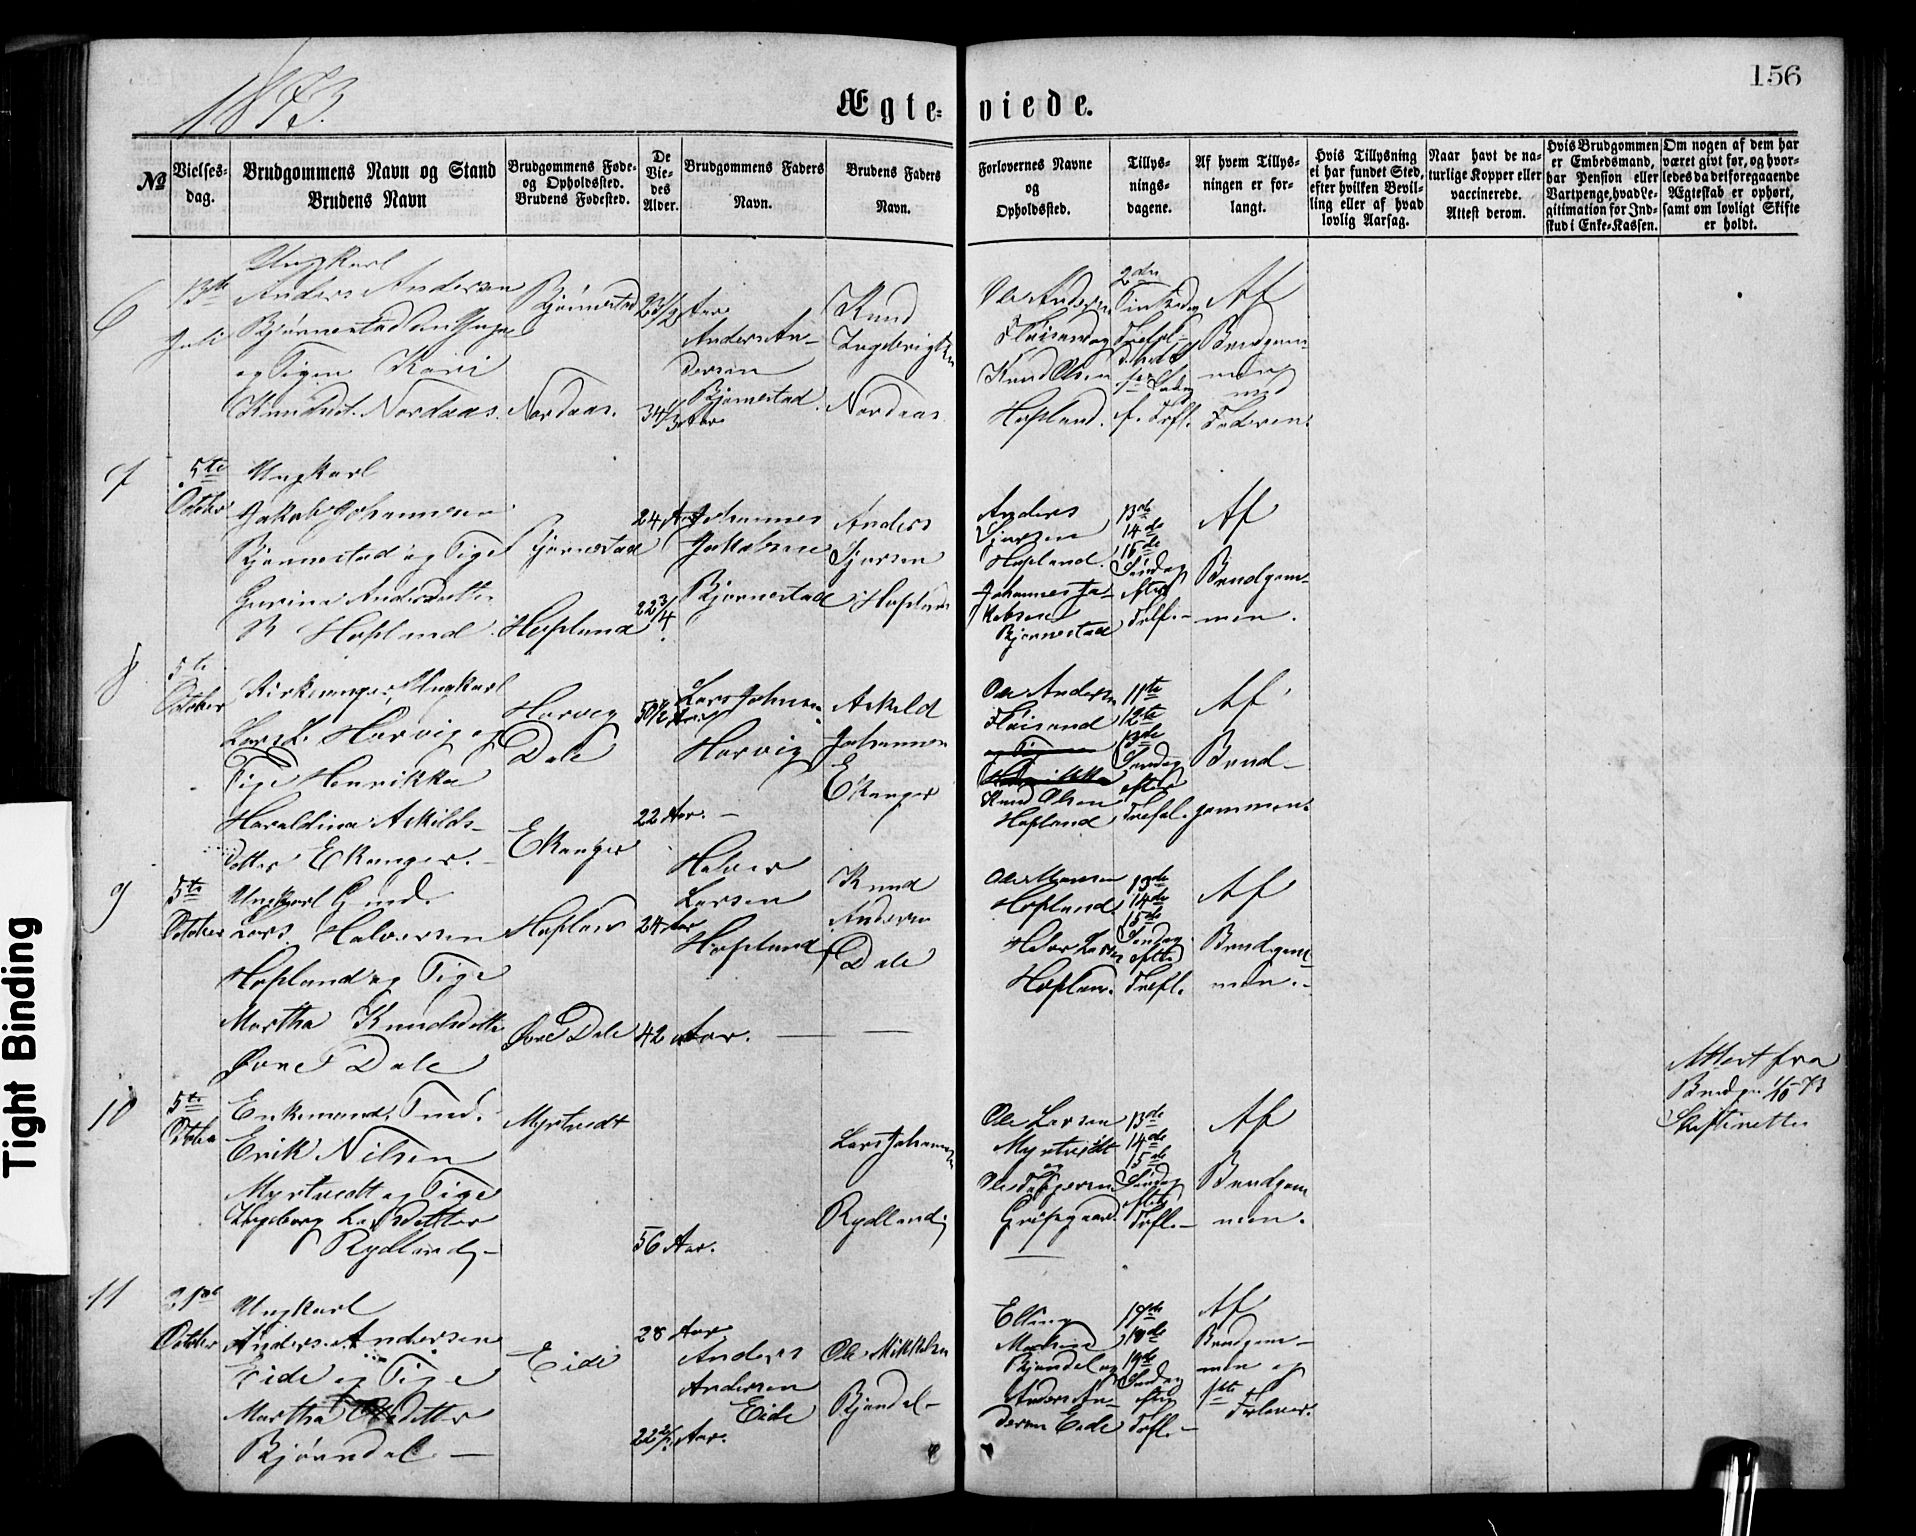 1873.
Ægte=
viede.
156
№
Vielses-
dag.
Brudgommens Navn og Stand
Brudens Navn
Brudgommens Føde-
og Opholdssted.
Brudens Fødested.
De
Vie-
des
Alder.
Brudgommens Faders
Navn.
Brudens Faders
Navn.
Forlovernes Navne
og
Opholdssted.
Tillys-
nings-
dagene.
Af hvem Tillys-
ningen er for-
langt.
Hvis Tillysning
ei har fundet Sted,
efter hvilken Bevil-
ling eller af hvad
lovlig Aarsag.
Naar havt de na-
turlige Kopper eller
vaccinerede.
Attest derom.
Hvis Brudgommen
er Embedsmand,
har Pension eller
Vartpenge, hvad Le-
gitimation for Ind-
skud i Enke-Kassen.
Om nogen af dem har
været givt før, og hvor-
ledes da det foregaaende
Ægteskab er ophørt,
samt om lovligt Skifte
er holdt.
6
13de
Juli
Ungkarl
Anders Andersen
Bjørnestad
og Pigen Kari
Knudsdt. Nordaas.
Bjørnestad
Nordaas.
23 1/2 Aar
34 1/3 Aar
Anders An-
dersen
Bjørnestad
Knud
Ingebrigtsen
Nordaas
Ole Andersen
Fløisand og
Knud Olsen
Hopland.
2den
Af
Brudgom-
men
med
Faderen.
7
5te
October
Ungkarl
Jakob Johannesen
Bjørnestad og Pige
Gurina Andersdatter
Hopland
Bjørnestad
Hopland
24 Aar
22 3/4
Johannes
Jakobsen
Bjørnestad
Anders
Hopland
Anders
Hopland.
Johannes Ja-
kobsen
Bjørnestad
13de
14de
15de
Søndag
efter
Trefl.
Af
Brudgom-
men.
8
5te
October
Kirkesanger, Ungkarl
Lars L. Harvig og
Pige Henrikka
Haraldina Askilds-
datter Ekanger.
Harvig
Dale
Ekanger
50 1/2 Aar
22 Aar.
Lars Johnsen
Harvig
Askild
Johannesen
Ekanger
Ole Andersen
Fløisand
Knud Olsen
Hopland
11te
12te
13de
Søndag
efter
Trefol.
Af
Brud-
gommen.
9
5te
October
Ungkarl
Lars Halversen
Hopland og Pige
Martha Knudsdatter
Øvre Dale
Hopland
Øvre Dale
24 Aar
42 Aar.
Halver
Larsen
Hopland
Knud
Andersen
Dale
Ole Monsen
Hopland.
Halvor Larsen
Hopland.
13de
14de
15de
Søndag
efter
Trefl.
Af
Brudgom-
men.
10
5te
October
Enkemand,
Erik Nilsen
Myrtvedt og Pige
Ingeborg Larsdatter
Rydland
Myrtvedt
56 Aar.
Lars Johannesen
Rydland
Ole Larsen
Myrtvedt
og
Ole
13de
14de
15de
Søndag
efter
Trefl.
Af
Brudgom
men.
Attest fra
1/10 73
Skifteretten
11
Ungkarl
October
Anders Andersen
Eide og Pige
Martha Olsdatter
Bjørndal
Eide
28 Aar
Aar.
Anders
Andersen
Eide
Ole Mikkelsen
Bjøndal
Elling
Bjøndal og
Anders An-
dersen Eide
17de
18de
19de
Søndag
efter
Trefl.
Af
Brudgom-
men og
Forlover.
Tight Binding